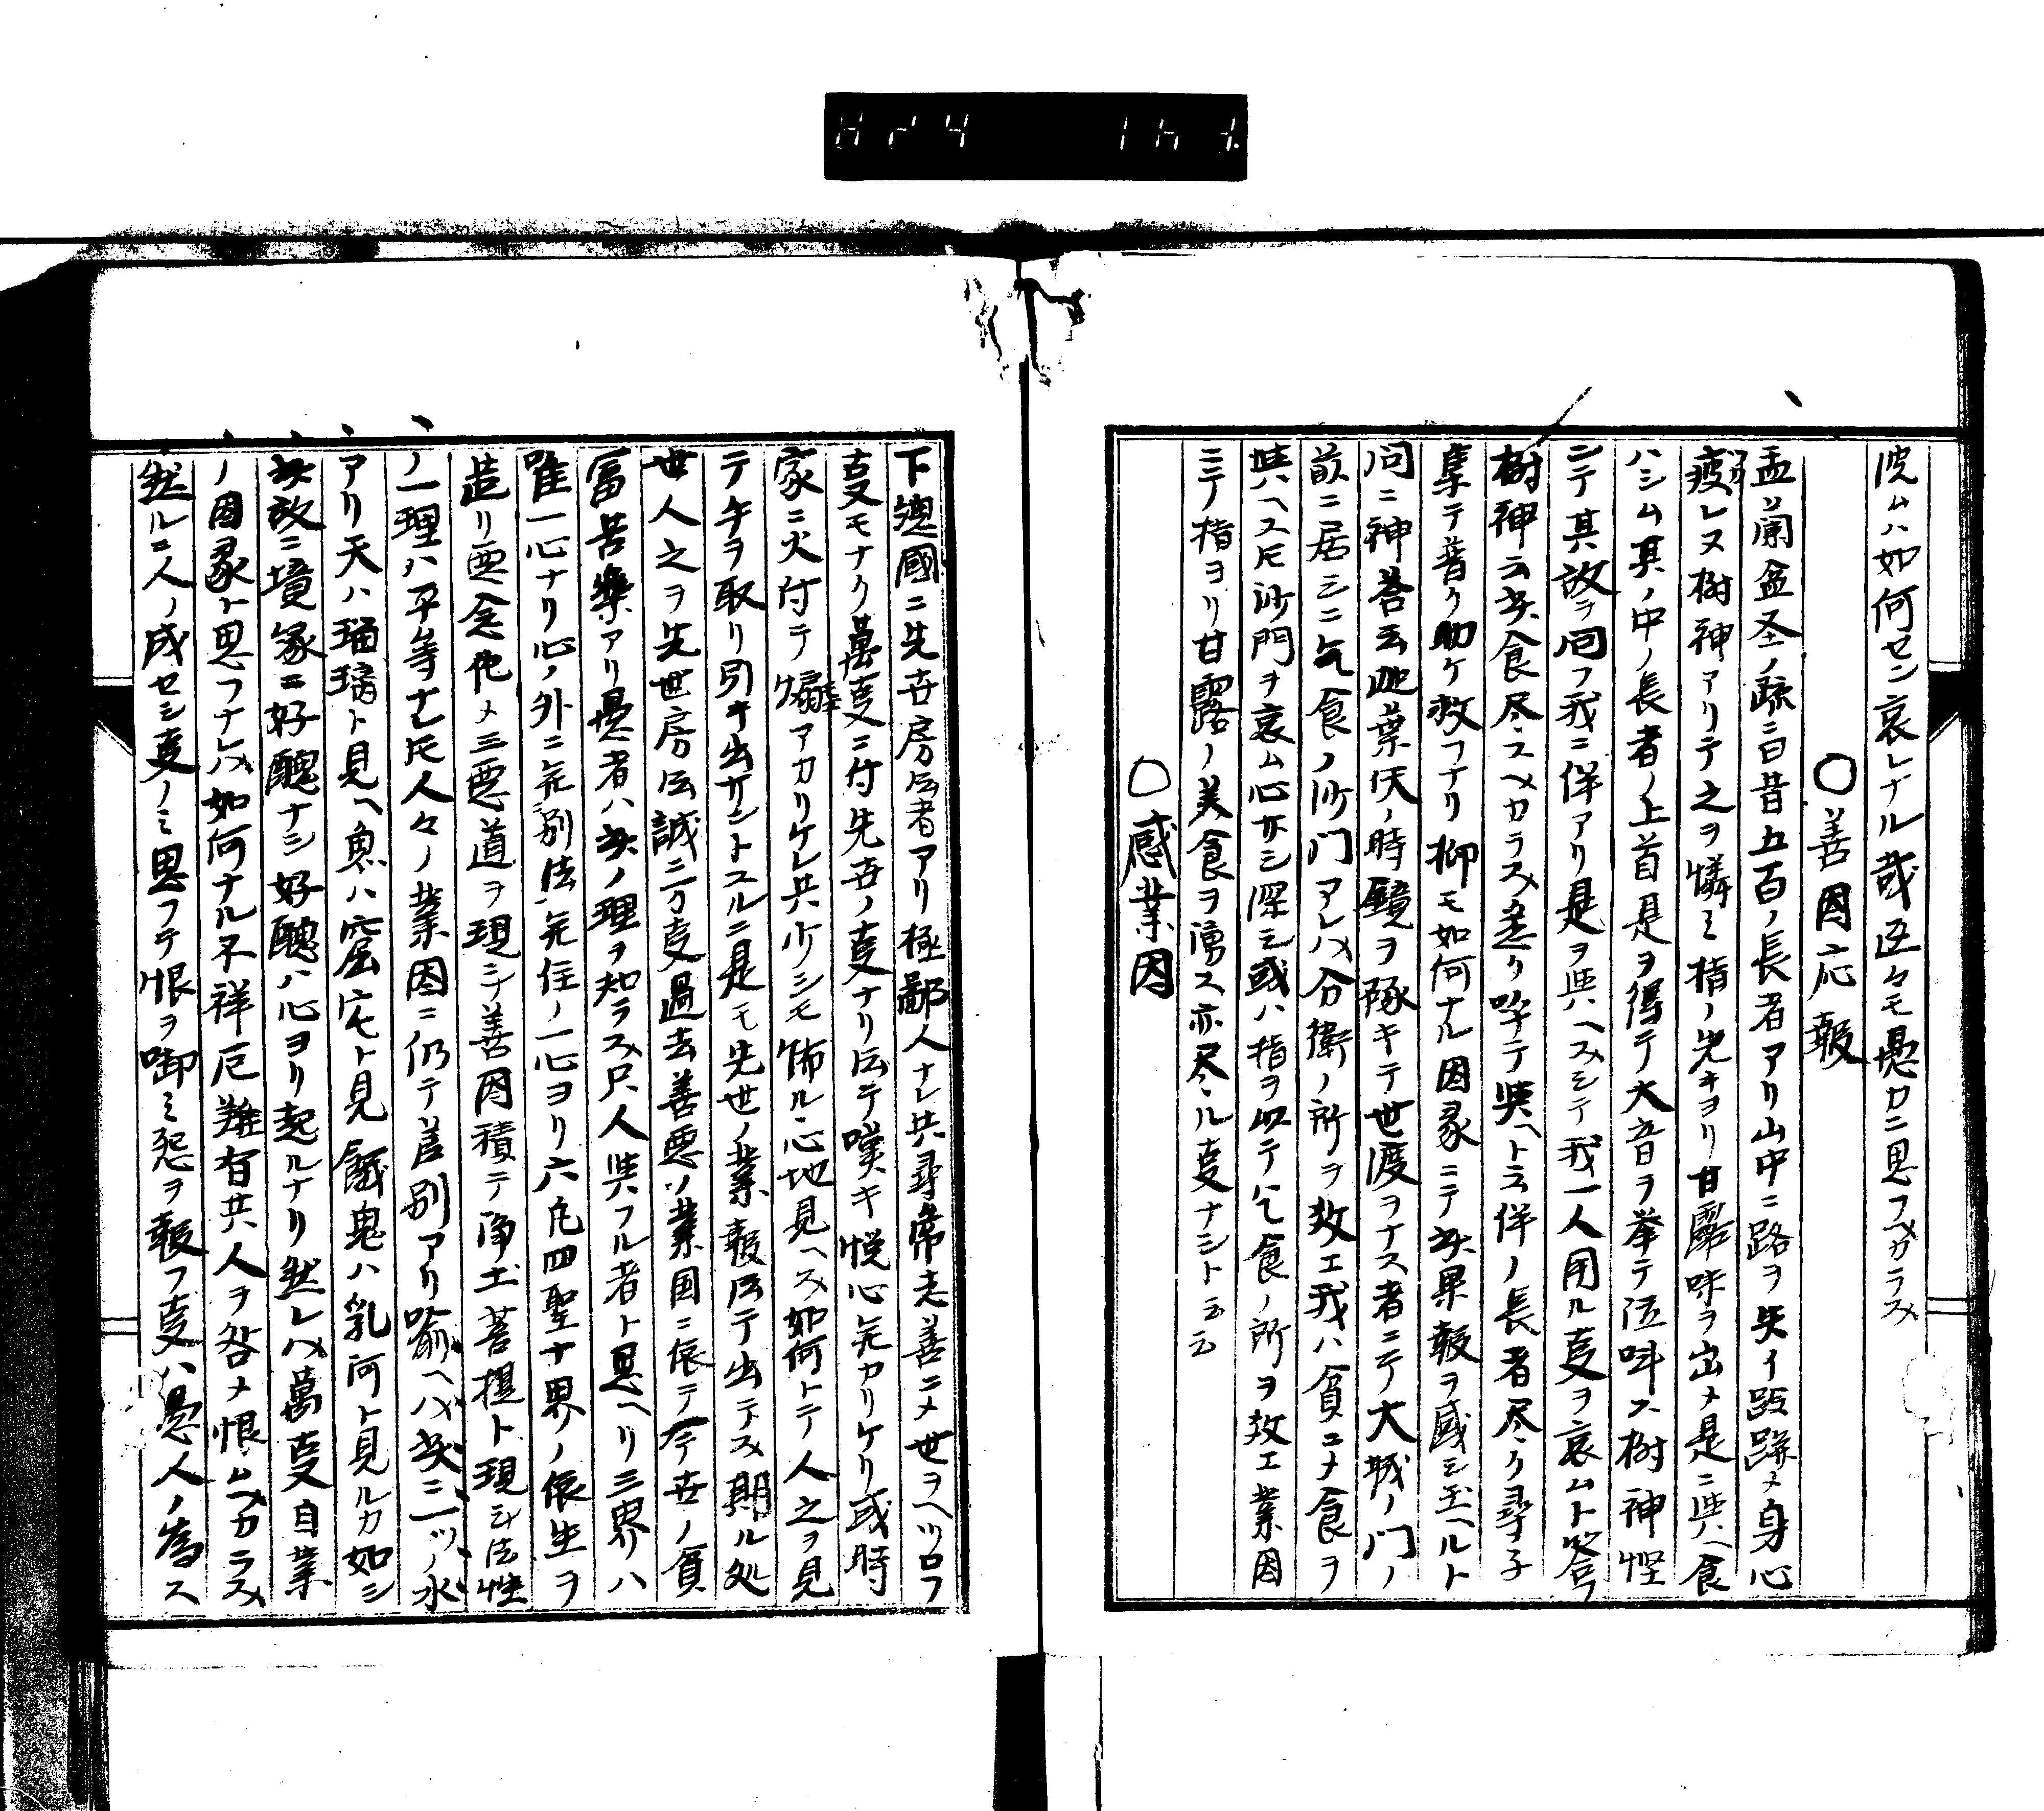 沈ムハ如何セン哀レナル哉返々モ愚カニ思フヘカラス
〇善因応報
盂蘭盆圣ノ疏ニ曰昔五百ノ長者アリ山中ニ路ヲ失イ跂跰メ身心
疲レヌ樹神アリテ之ヲ憐ミ指ノ先キヨリ甘露味ヲ出メ是ニ與ヘ食
ハシム其ノ中ノ長者ノ上首是ヲ得テ大音ヲ挙テ泣叫ス樹神怪
ンテ其故ヲ回フ我ニ伴アリ是ヲ與ヘスシテ我一人用ル叓ヲ哀ムト答フ
樹神云美食尽スヘカラス迄リ呼テ與ヘト云伴ノ長者尽ク尋子
集テ普ク助ケ救フナリ抑モ如何ナル因縁ニテ美果報ヲ感シ玉ヘルト
问ニ神荅云迦葉仏ノ時鏡ヲ琢キテ世渡ヲナス者ニテ大城ノ门ノ
前ニ居シニ乞食ノ沙门アレハ分衛ノ所ヲ教エ我ハ貧ニメ食ヲ
與ヘス𪜈沙門ヲ哀ム心サシ深シ或ハ指ヲ以テ乞食ノ所ヲ教エ業因
ニテ指ヨリ甘露ノ美食ヲ湧ス亦尽ル叓ナシト云云
〇感業因
下總國ニ先世房云者アリ極鄙人ナレ共尋常志善ニメ世ヲヘツロフ
叓モナク萬叓ニ付先世ノ叓ナリ云テ嘆キ悦心无カリケリ或時
家ニ火付テ煽アカリケレ共少シモ怖ル心地見ヘス如何トテ人之ヲ見
テ手ヲ取リ引キ出サントスルニ是モ先世ノ業報云テ出テス期ル処
世人之ヲ先世房云誠ニ万叓過去善悪ノ業因ニ依テ今世ノ貧
富苦樂アリ愚者ハ此ノ理ヲ知ラス只人與フル者ト思ヘリ三界ハ
唯一心ナリ心ノ外ニ无別法无住ノ一心ヨリ六凡四聖十界ノ依生ヲ
造リ悪念他メ三悪道ヲ現シテ善因積テ浄土菩提ト現シ法性
ノ一理ハ平等ナレ𪜈人々ノ業因ニ仍テ差別アリ喩ヘハ此ニ一ツノ水
アリ天ハ瑠璃ト見ヘ魚ハ窟宅ト見餓鬼ハ乳河ト見ルカ如シ
此故ニ境縁ニ好醜ナシ好醜ハ心ヨリ起ルナリ然レハ萬叓自業
ノ因縁ト思フナレハ如何ナル不祥厄難有共人ヲ咎メ恨ムヘカラス
然ルニ人ノ成セシ叓ノミ思フテ恨ヲ啣ミ怨ヲ報フ叓ハ愚人ノ為ス